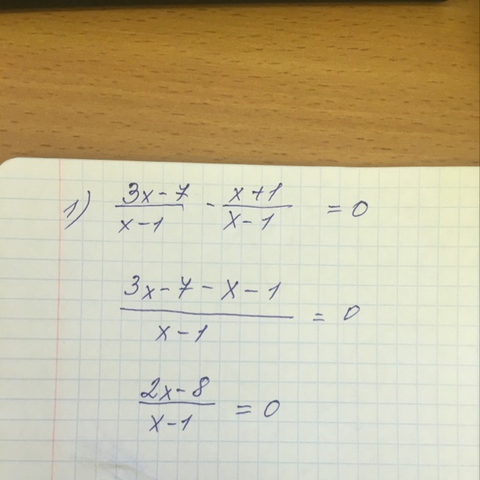 1) (3x-7)/(x-1) - (x+1)/(x-1) = 0
(3x-7-x-1)/(x-1) = 0
(2x-8)/(x-1) = 0